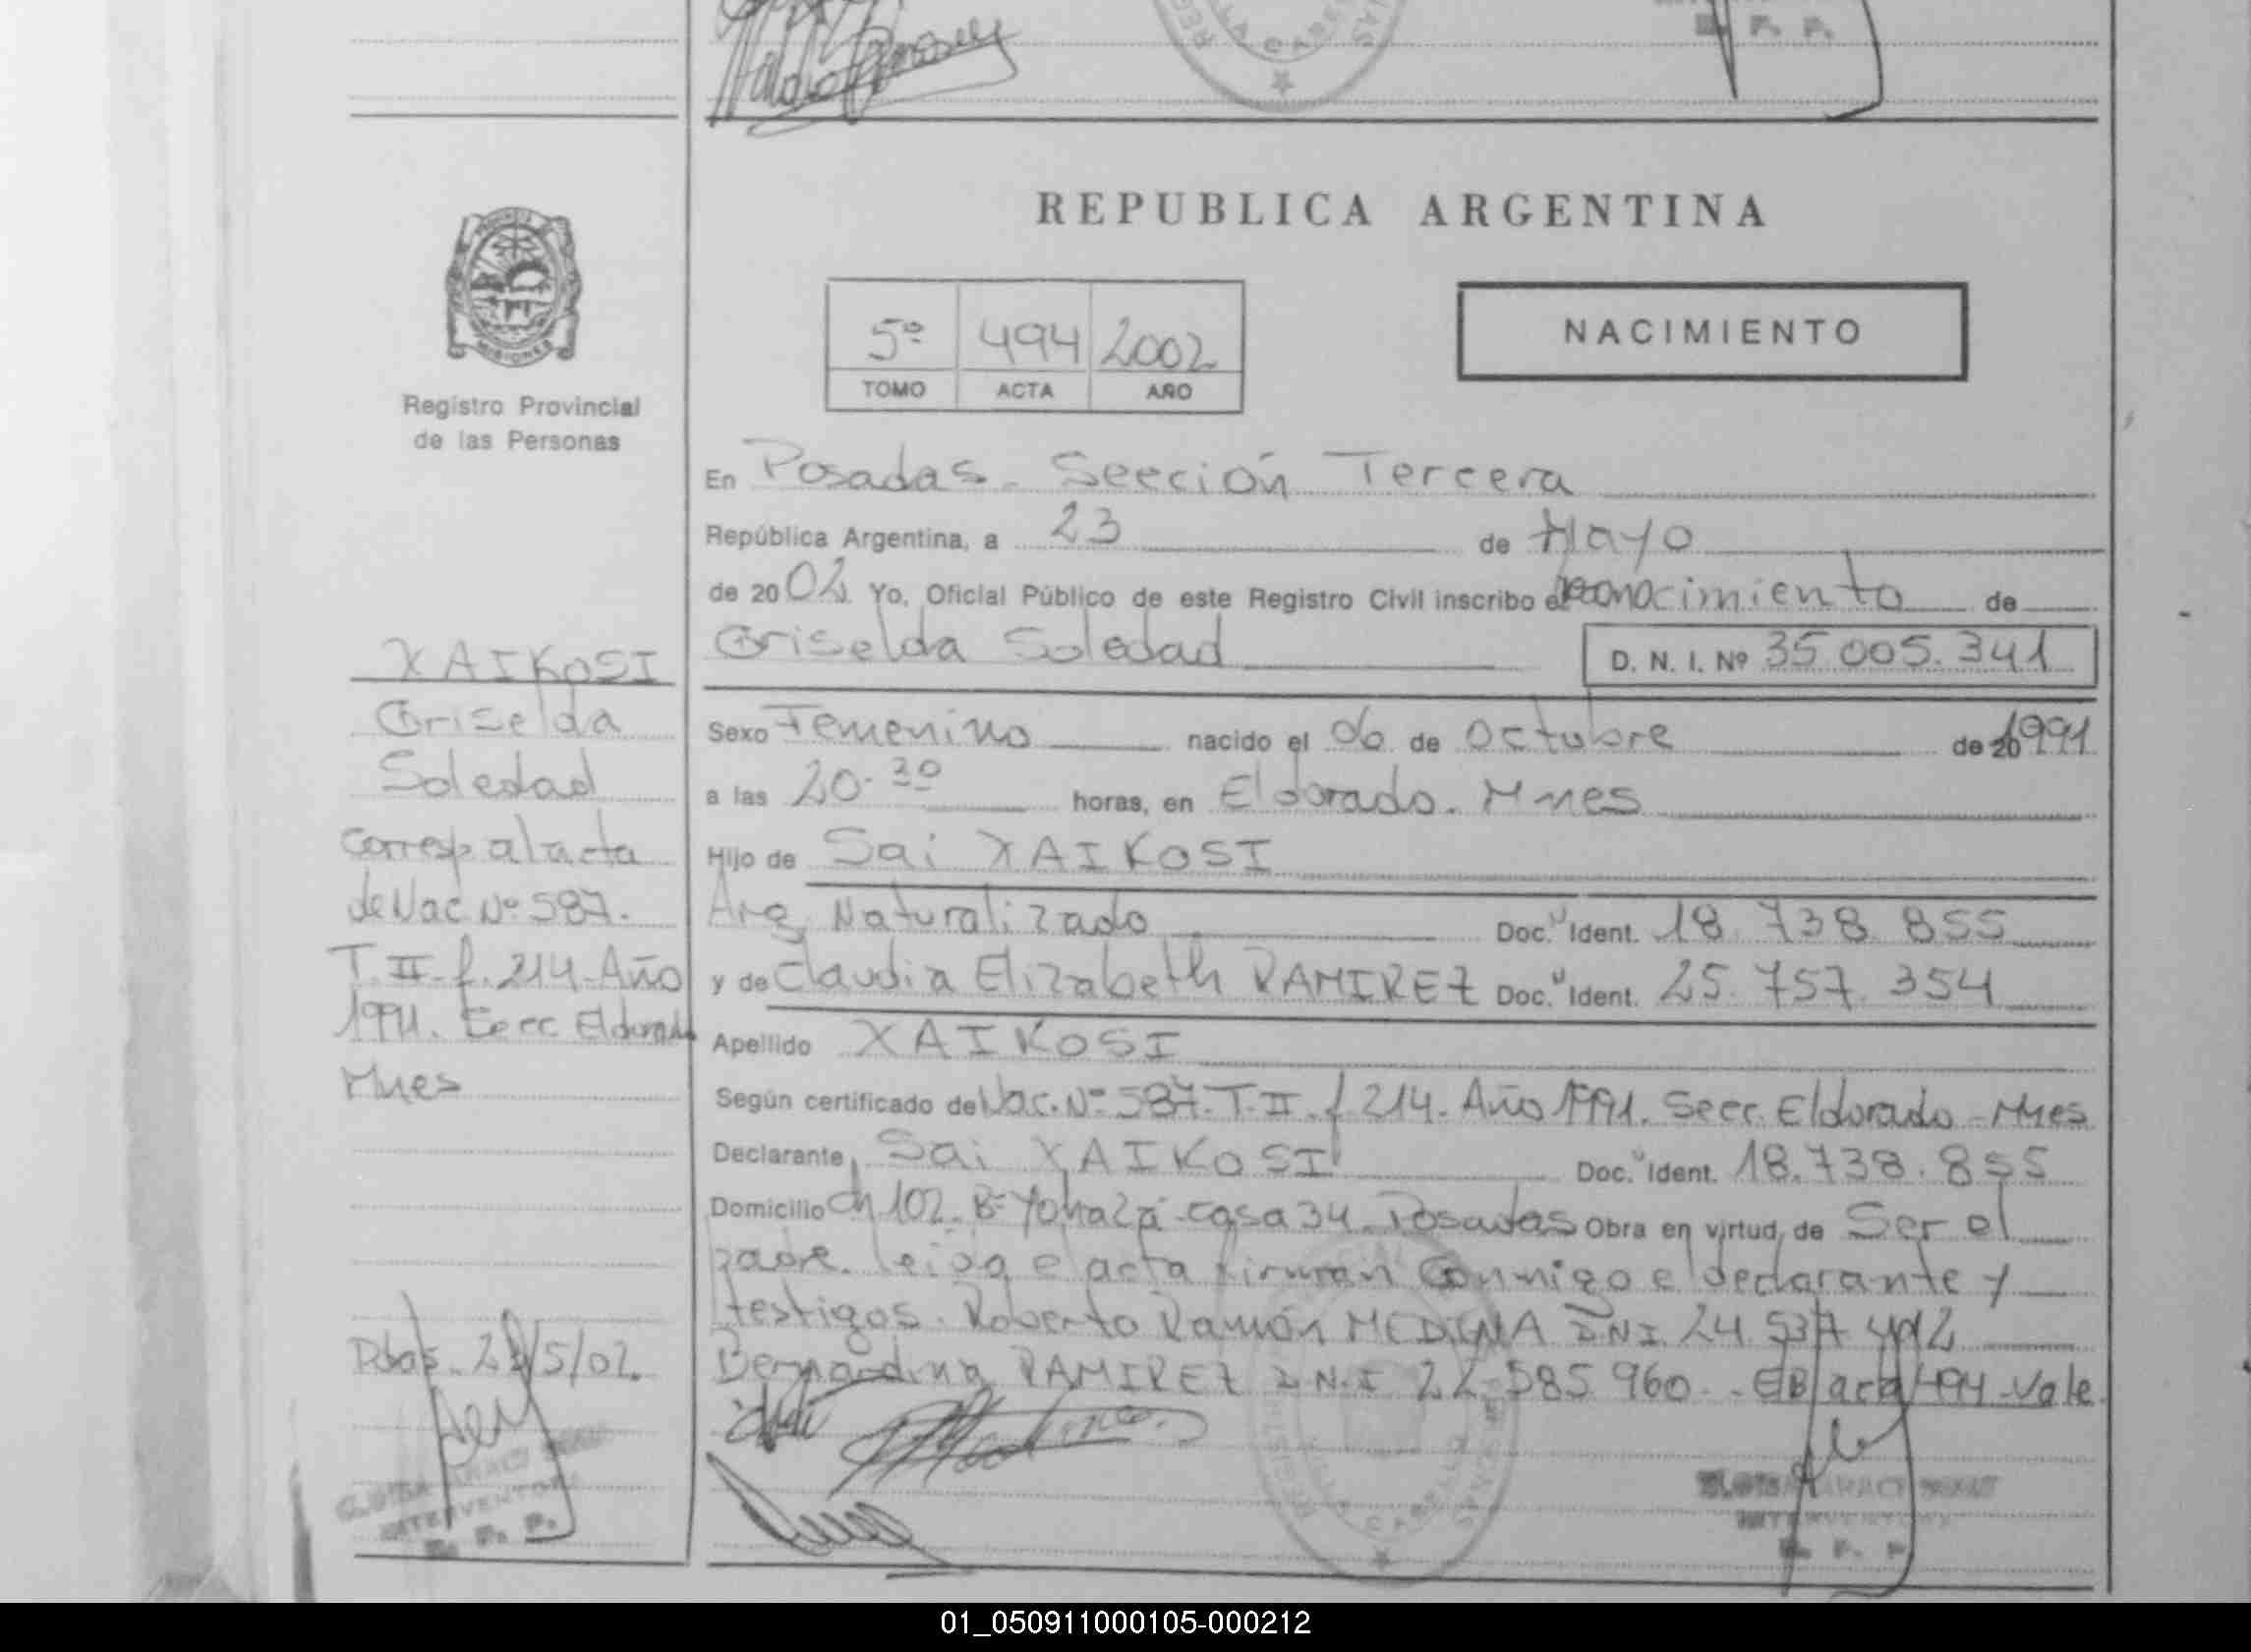 REPUBLICA ARGENTINA
MISIONES
Registro Provincial
de las Personas
5º 494 2002
TOMO ACTA AÑO
NACIMIENTO
En Posadas - Sección Tercera
República Argentina, a 23 de Mayo
de 2002 Yo, Oficial Público de este Registro Civil inscribo el reconocimiento de
Griselda Soledad D. N. I. Nº 35.005.341
Sexo Femenino nacido el 06 de Octubre de 20 1991
a las 20.30 horas, en Eldorado. Mnes
Hijo de Sai XAIKOSI
Arg. Naturalizado Doc. Ident. 18.738.855
y de Claudia Elizabeth RAMIREZ Doc. Ident. 25.757.354
Apellido XAIKOSI
Según certificado de Nac. Nº 587. T. II. f 214. Año 1991. Secc. Eldorado - Mnes
Declarante Sai XAIKOSI Doc. Ident. 18.738.855
Domicilio Ch 102. Bº Yohazá - casa 34. Posadas Obra en virtud de Ser el
padre. Leída el acta firman conmigo el declarante y
testigos. Roberto Ramón MEDINA DNI 24.537
Bernardina RAMIREZ DNI 22.585.960 - acta 494 - Vale
XAIKOSI
Griselda
Soledad
Corresp al acta
de Nac Nº 587.
T. II - f. 214 - Año
1991. Secc Eldorado
Mnes
Pdas. /5/02.
INTERVENTORA
R. P. P.
INTERVENTORA
R. P. P.
01_050911000105-000212